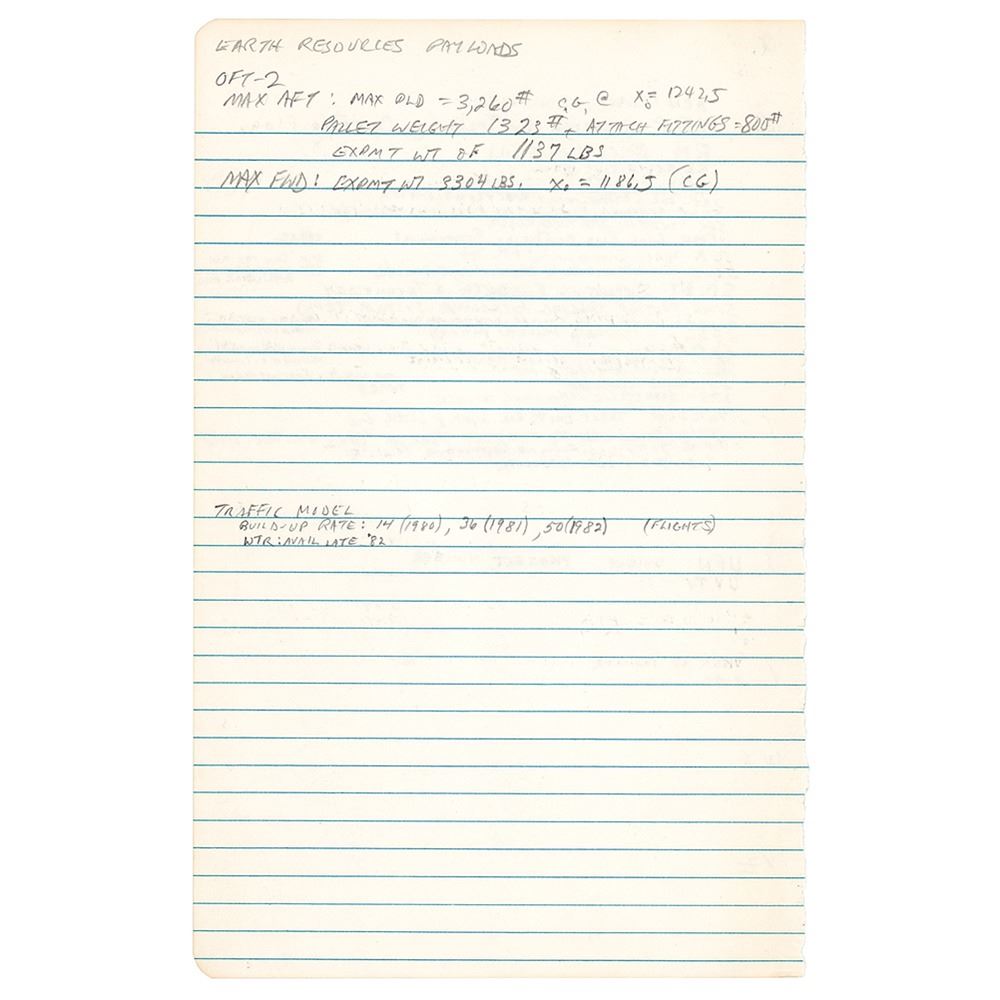 EARTH RESOURCES PAYLOADS
OFT-2
MAX AFT: MAX PLD = 3,260# C.G. @ X₀= 1242.5
PALLET WEIGHT 1323# + ATTACH FITTINGS = 800#
EXPMT WT OF 1137 LBS
MAX FWD: EXPMT WT 3304 LBS. X₀ = 1186.5 (CG)
TRAFFIC MODEL
BUILD-UP RATE: 14 (1980), 36 (1981), 50 (1982) (FLIGHTS)
WTR: AVAIL LATE '82